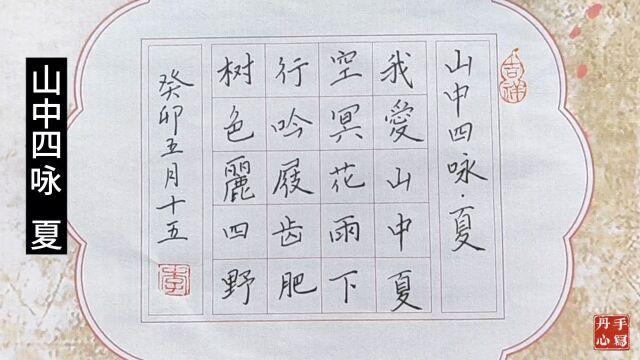 吉祥
山中四咏·夏
我愛山中夏
空冥花雨下
行吟屐齿肥
树色麗四野
癸卯五月十五
李
山中四咏 夏
手寫
丹心